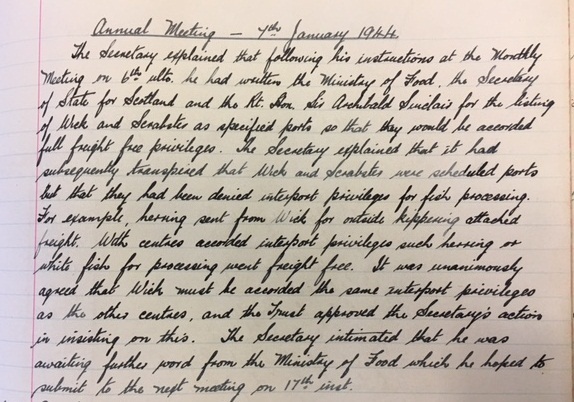 Annual Meeting — 7th January 1944.
The Secretary explained that following his instructions at the Monthly
Meeting on 6th ulto. he had written the Ministry of Food, the Secretary
of State for Scotland and the Rt. Hon. Sir Archbald Sinclair for the listing
of Wick and Scrabster as specified ports so that they would be accorded
full freight free privileges. The Secretary explained that it had
subsequently transpired that Wick and Scrabster were scheduled ports
but that they had been denied interport privileges for fish processing.
For example, herring sent from Wick for outside kippering attached
freight. With centres accorded interport privileges such herring or
white fish for processing went freight free. It was unanimously
agreed that Wick must be accorded the same interport privileges
as the other centres, and the Trust approved the Secretary's action
in insisting on this. The Secretary intimated that he was
awaiting further word from the Ministry of Food which he hoped to
submit to the next meeting on 17th inst.